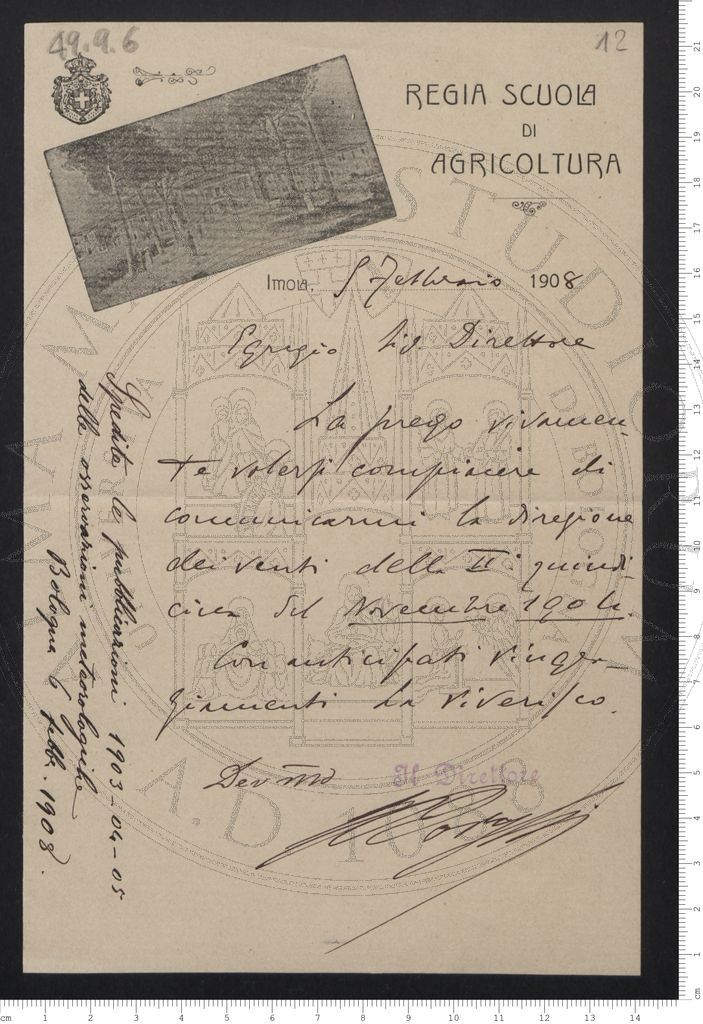 49.9.6
12
REGIA SCUOLA
DI
AGRICOLTURA
Imola, 5 Febbraio 1908
Egregio Sig. Direttore
La prego vivamen-
te volersi compiacere di
comunicarmi la direzione
dei venti della IIª quindi
cina del Novembre 1904.
Con anticipati ringra-
ziamenti La riverisco.
Dev mo
Il Direttore
Spedite le pubblicazioni 1903-04-05
delle osservazioni meteorologiche
Bologna 6 febb. 1908.
ALMA MATER STUDIORUM
A.D. 1088